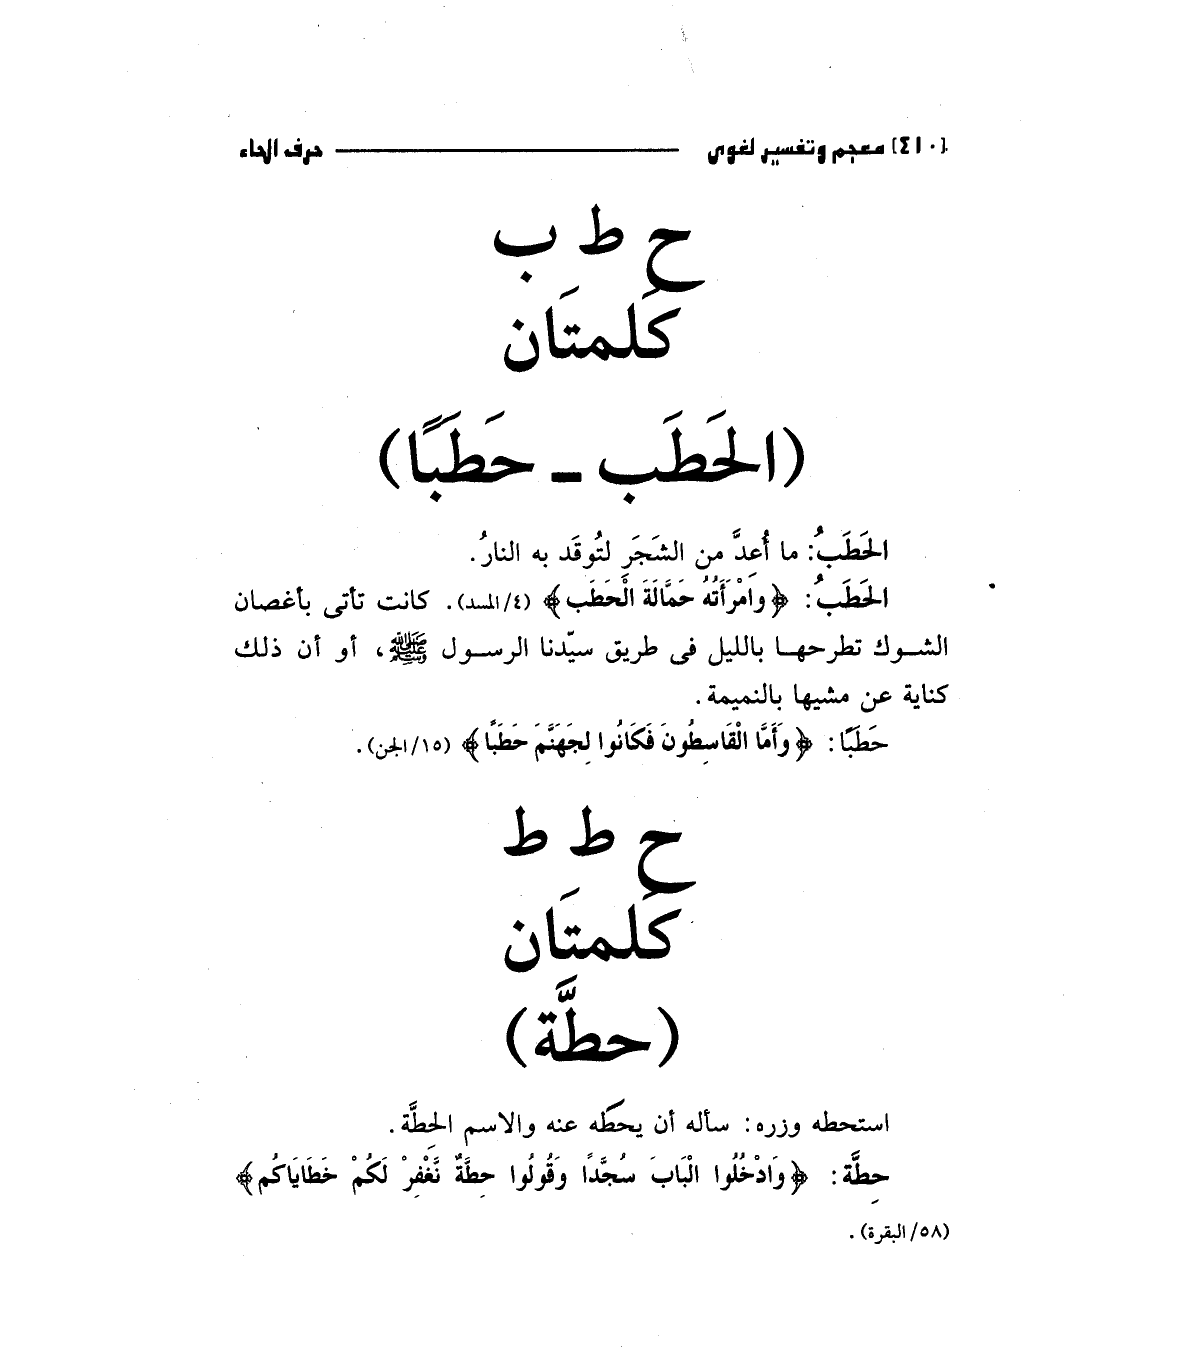 [٤١٠] معجم وتفسير لغوى حرف الحاء
ح ط ب
كَلمتَان
(الحَطَب - حَطَبًا)
الحَطَبُ: ما أُعِدَّ من الشَجَرِ لتُوقَد به النارُ.
الحَطَبُ: ﴿وَامْرَأَتُهُ حَمَّالَةَ الْحَطَبِ﴾ (٤/المسد). كانت تأتى بأغصان
الشـوك تطرحهـا بالليل فى طريق سيّدنا الرسـول ﷺ، أو أن ذلك
كناية عن مشيها بالنميمة.
حَطَبًا: ﴿وَأَمَّا الْقَاسِطُونَ فَكَانُوا لِجَهَنَّمَ حَطَبًا﴾ (١٥/الجن).
ح ط ط
كَلمتَان
(حطَّة)
استحطه وزره: سأله أن يحطَه عنه والاسم الحِطَّة.
حِطَّة: ﴿وَادْخُلُوا الْبَابَ سُجَّدًا وَقُولُوا حِطَّةٌ نَّغْفِرْ لَكُمْ خَطَايَاكُم﴾
(٥٨/البقرة).